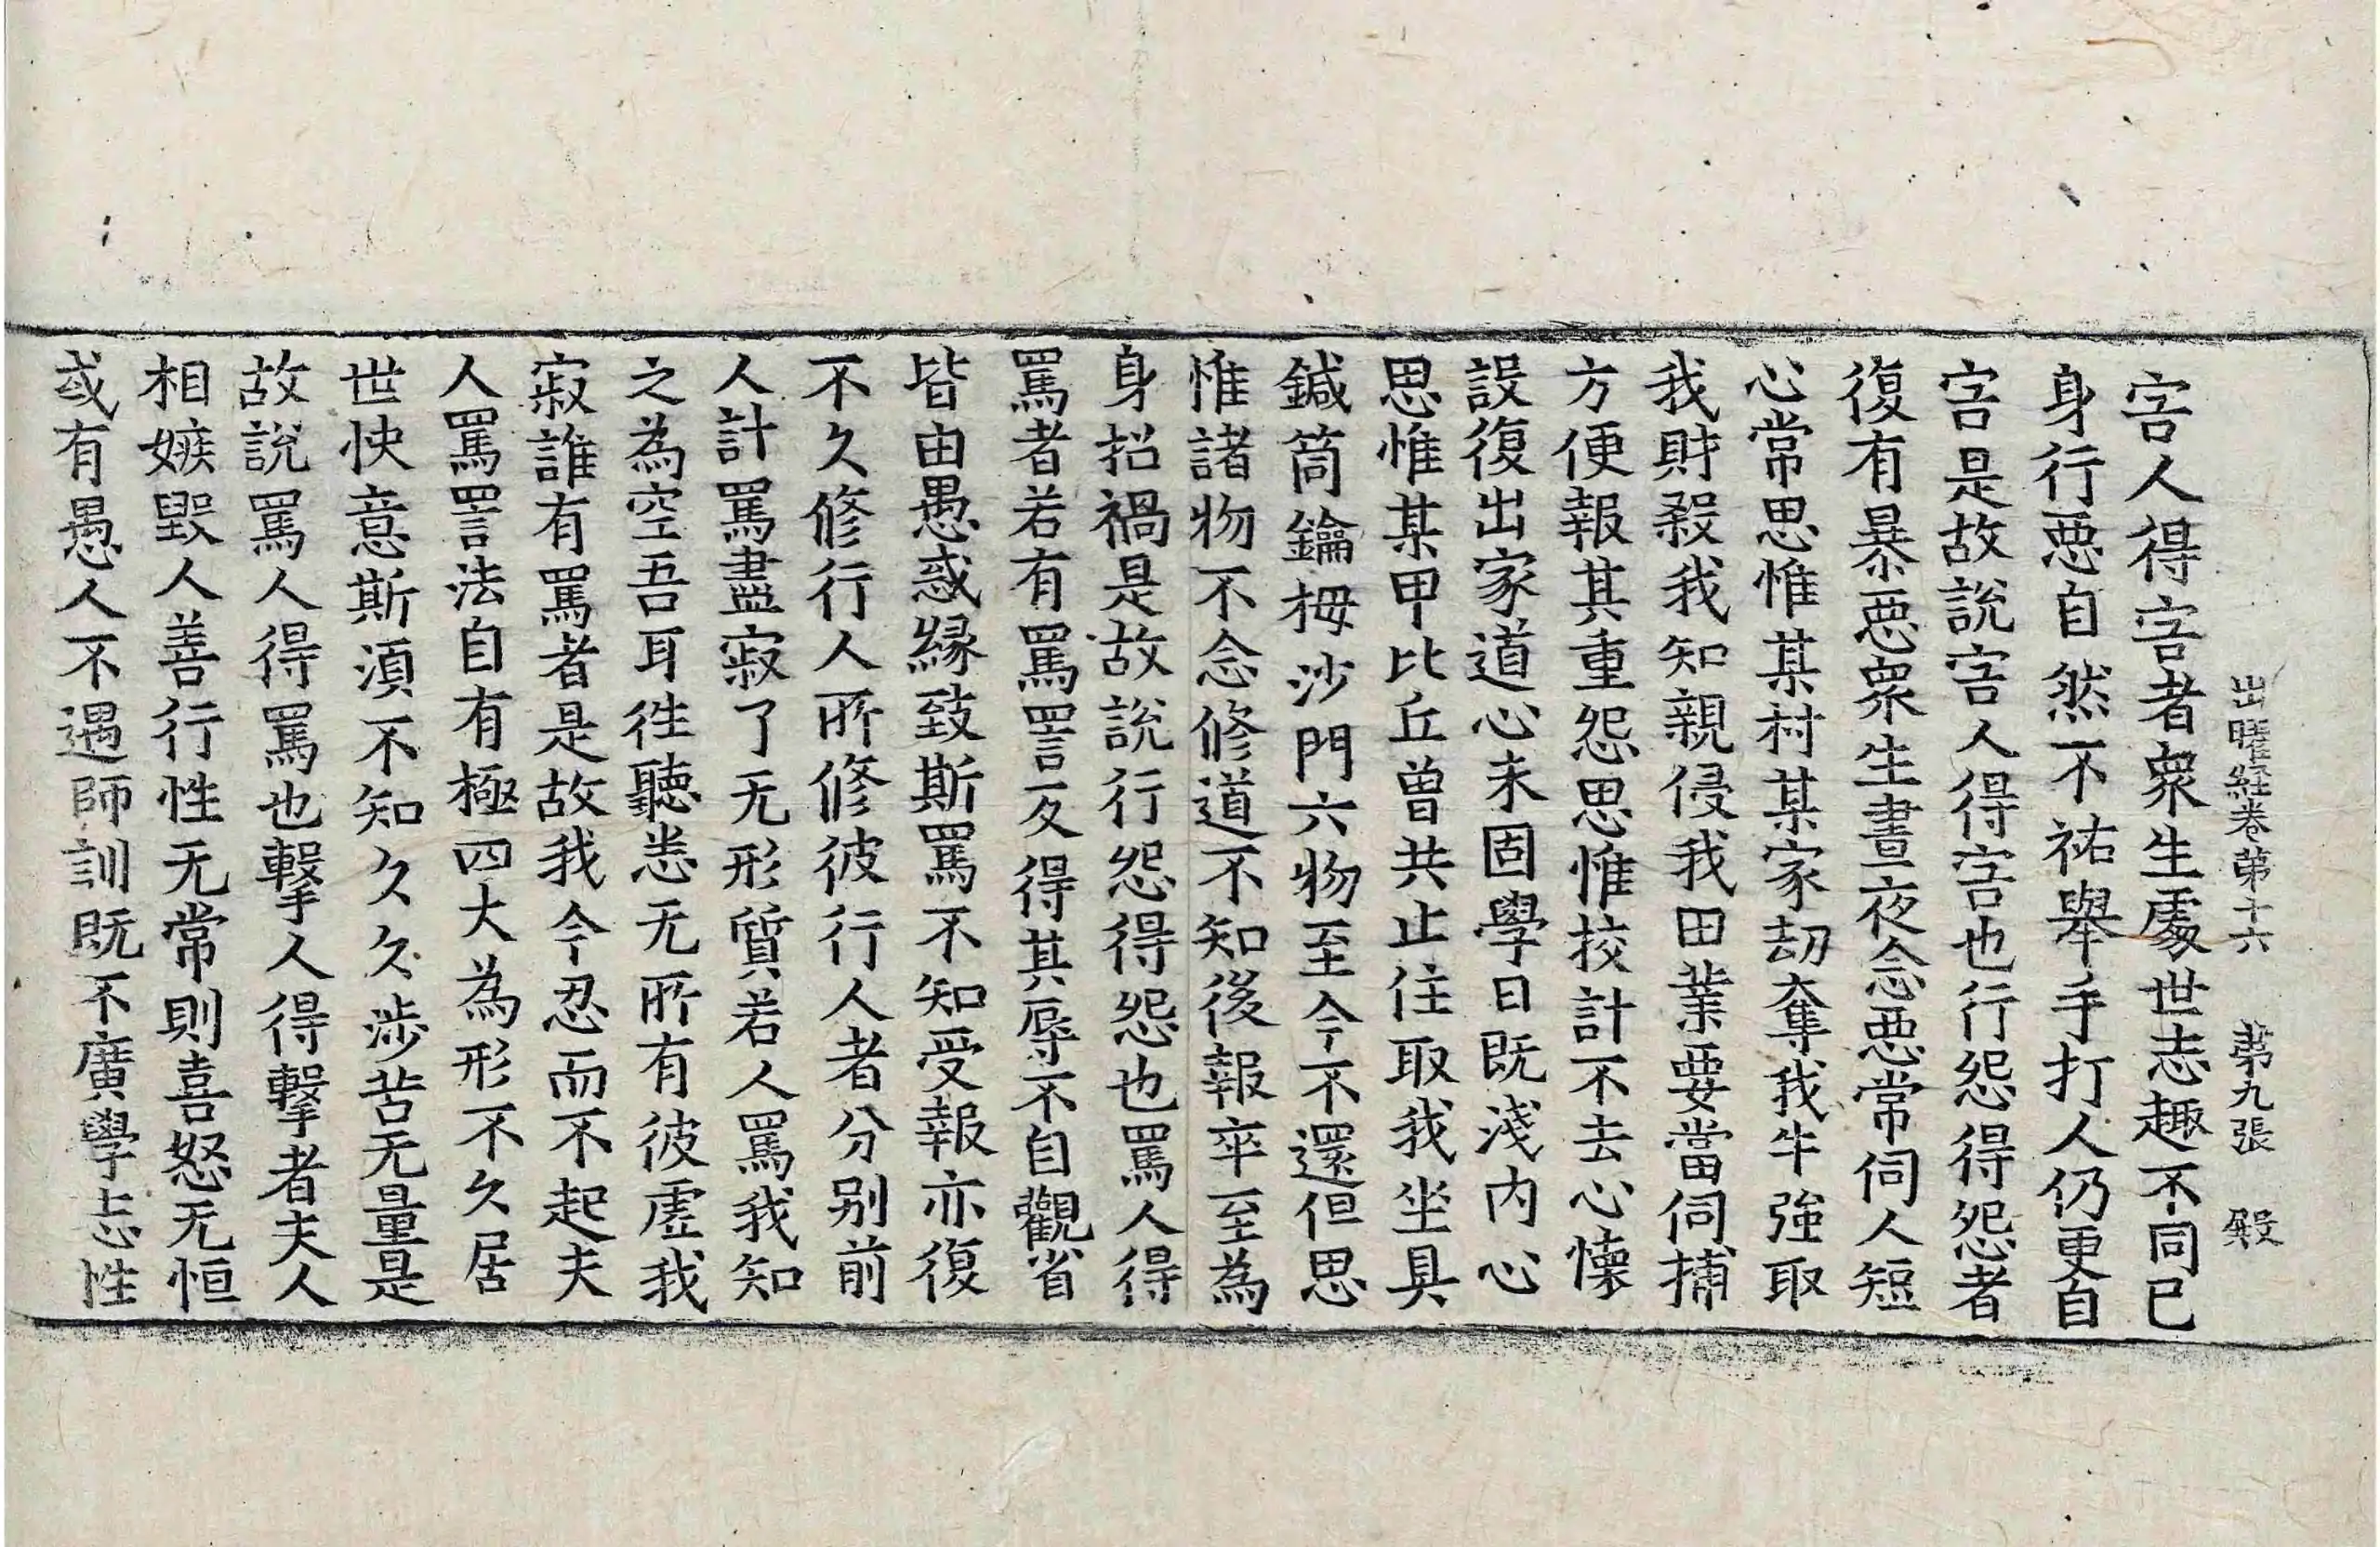 出曜経卷苐十六　苐九張　殿
害人得害者衆生處世志趣不同已
身行惡自然不祐舉手打人仍更自
害是故說害人得害也行怨得怨者
復有暴惡衆生晝夜念惡常伺人短
心常思惟某村某家刼奪我牛強取
我財殺我知親侵我田業要當伺捕
方便報其重怨思惟挍計不去心懐
設復出家道心未固學日既淺内心
思惟某甲比丘曾共止住取我坐具
鍼筒鑰拇沙門六物至今不還但思
惟諸物不念修道不知後報卒至為
身招禍是故說行怨得怨也罵人得
罵者若有罵詈反得其辱不自觀省
皆由愚惑縁致斯罵不知受報亦復
不久修行人所修彼行人者分别前
人計罵盡寂了无形質若人罵我知
之為空吾耳徃聽悉无所有彼虛我
寂誰有罵者是故我今忍而不起夫
人罵詈法自有極四大為形不久居
世快意斯湏不知久久涉苦无量是
故說罵人得罵也擊人得擊者夫人
相嫉毀人善行性无常則喜怒无恒
或有愚人不遇師訓既不廣學志性